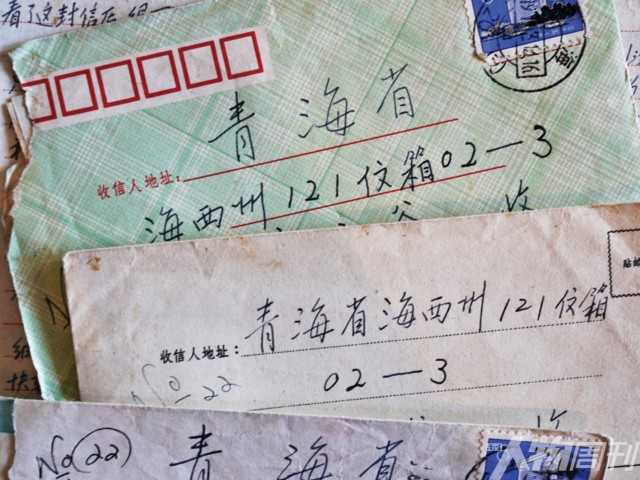 看了这封信后
青海省
收信人地址:
海西州121仗箱02—3
收
青海省海西州121仗箱
收信人地址:
02—3
No 22
收
No 22
青海省
人物周刊